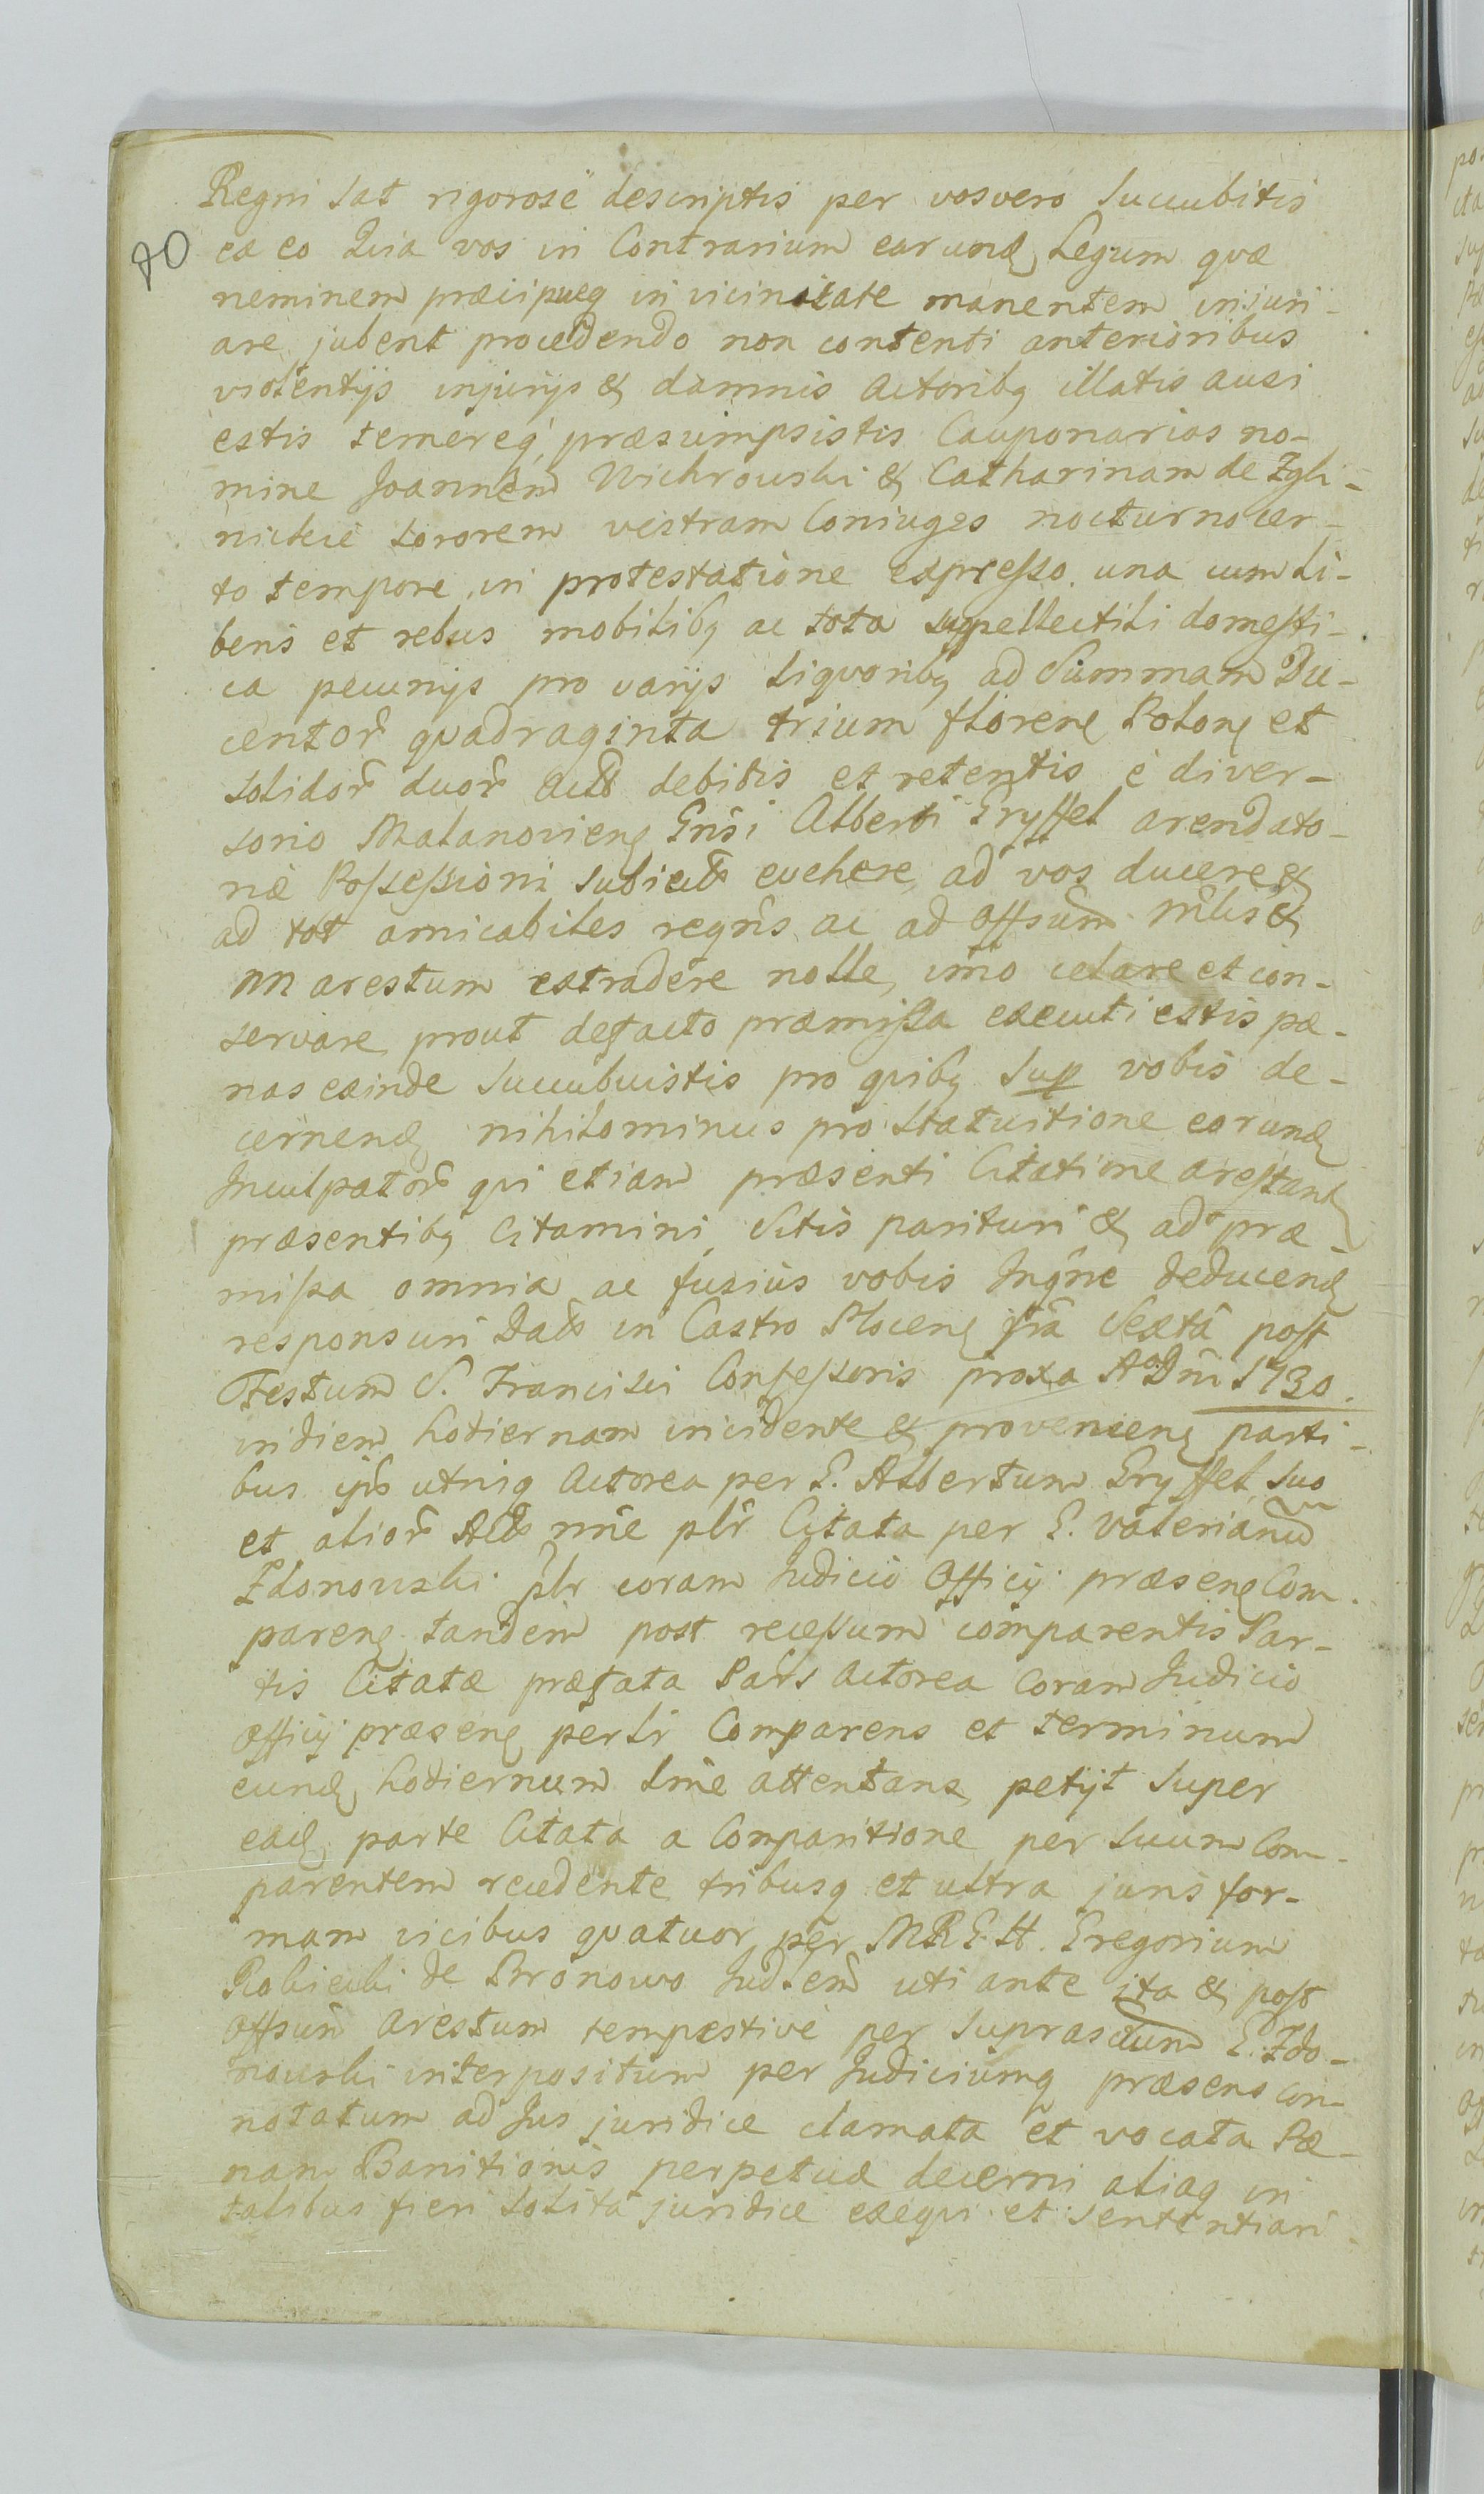 Regni sat rigorosè descriptis per vos vero succubitis
80
ex eo Quia vos in Contrarium earund Legum quæ
neminem præcipueq in vicinitate manentem injuri-
are jubent procedendo non contenti anterioribus
violentijs injurijs & damnis Actoribq illatis ausi
estis temereq, præsumpsistis Cauponarios no-
mine Joannem Wichrowski & Catharinam de Zgli-
nickie sororem vestram Coniuges nocturno cer-
to tempore in protestatione expresso una cum Li-
beris et rebus mobilibq ac tota suppellectili domesti-
ca pecunijs pro varijs liquoribq ad Summam Du-
centor quadraginta trium floren Polon et
solidor duor debitis et retentis è diver-
sorio Malanovien Gnsi Alberti Gryffel arendato-
riæ Possessioni evehere, ad vos ducere &
ad tot amicabiles regnis ac ad Offsum &
arestum extradere nolle, imo celare et con-
servare prout defacto præmissa executi estis pæ-
nas exinde succubuistis pro quibq sup vobis de-
cernend nihilominus pro statuitione earund
Inculpator qui etiam præsenti Citatione arestant
præsentibq Citamini, Sitis parituri & ad præ-
missa omnia ac fusius vobis deducend
responsuri in Castro Plocen fria Sexta post
Festum S. Francisci Confessoris proxa Ao Dni 1730.
in diem hodiernam incidente & provenien parti-
bus ijs utrisq Actorea per G. Albertum Gryffel suo
et alior nne plr Citata per G. Valerianum
Zdonowski plr coram Judicio Officij præsen Com-
paren tandem post recessum comparentis Par-
tis Citatæ præfata Pars Actorea coram Judicio
Officij præsen Comparens et terminum
eund hodiernum attentans petijt super
ead parte Citata a Comparitione per suum Com-
parentem recedente tribusq et ultra juris for-
mam vicibus quatuor per MRGH. Gregorium
de Bronowo uti ante ita & post
Offsum arestum tempestive per suprasctum G. Zdo-
nowski interpositum per Judiciumq præsens con-
notatum ad Jus juridice clamata et vocata Pæ-
nam Banitionis perpetuæ decerni aliaq in
talibus fieri solita juridice exequi et sententiari